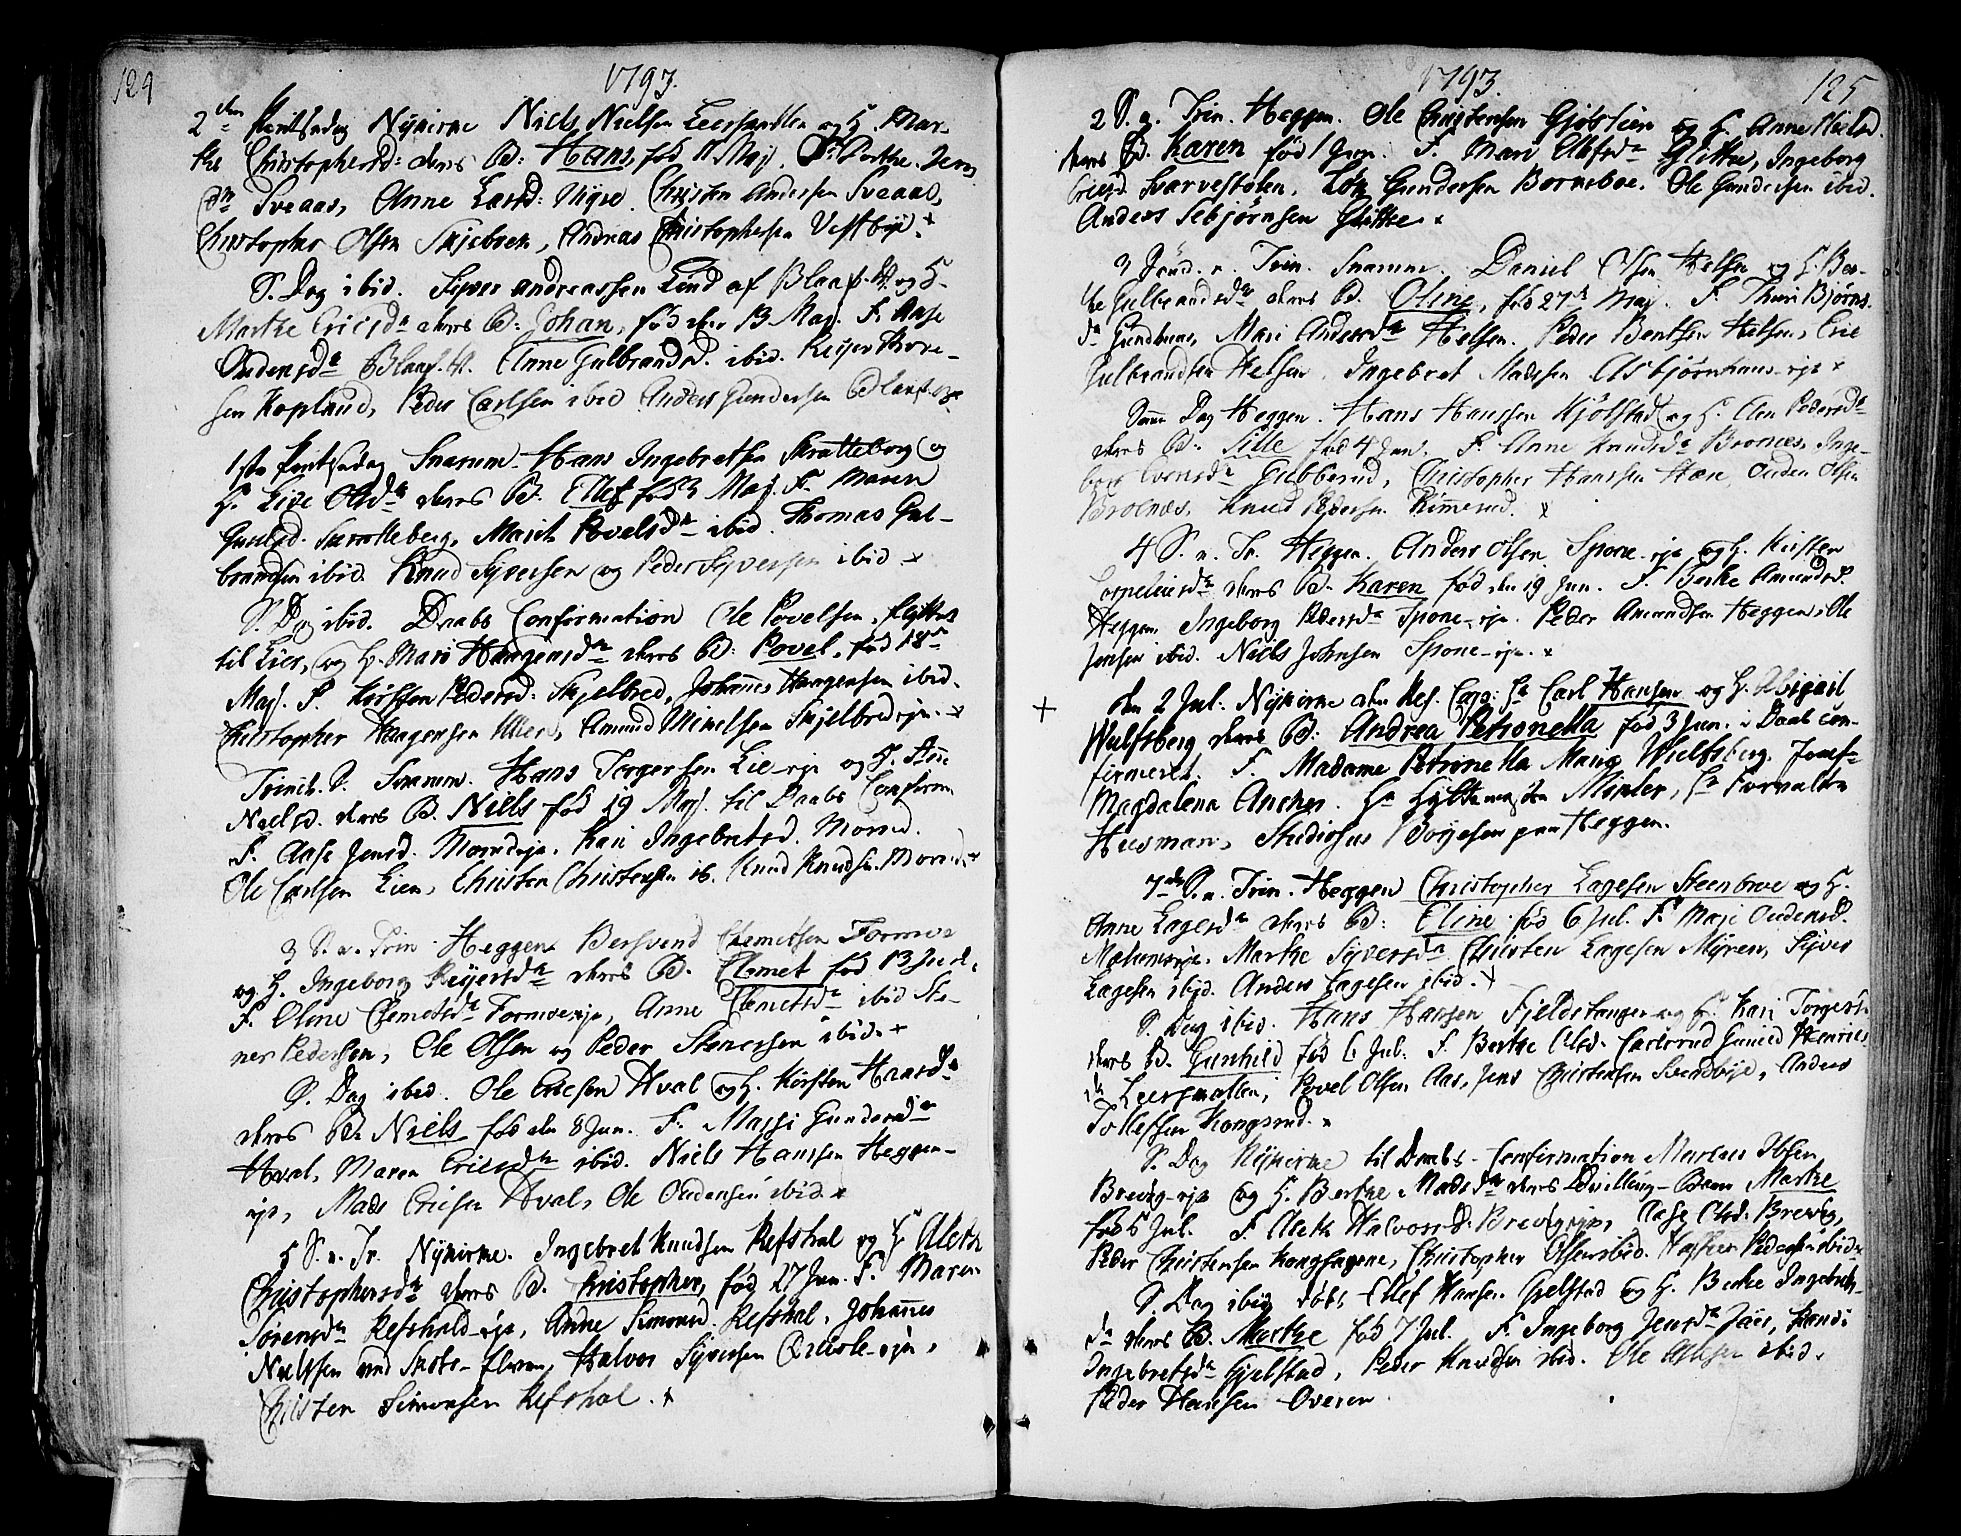 124
1793.
2den Pintsedag Nykirke Niels Nielsen Leersmatten og H. Mar-
the Christophersd: deres B: Hans, fød 11 Maj. F. Berthe Jens
Dr Sveaas, Anne Larsd: Christen Andersen Sveaas,
Christopher Olsen Skjebræk, Andreas Christophersen Vestbye. x
S. Dag ibid. Syver Andreassen Lind af Blaaf. V. og H.
Marthe Ericsdr deres B: Johan, fød den 13 Maj. F. Aase
Oudensdr Blaaf. V. Anne Gulbrandsd. ibid. Reyer Thore-
sen Kopland, Peder Carlsen ibid Anders Gundersen Blaaf.
1ste Pintsedag Snarum. Hans Ingebretsen Skralleberg og
H. Live Olsdr deres B. Ellef fød 3 Maj. F. Maren
Gunlsd. Skralleberg, Marit Povelsdr ibid. Thomas Gul-
brandsen ibid. Knud Syversen og Peder Syversen ibid x
S. Dag ibid. Daabs Confirmation Ole Povelsen, flyttet
til Lier, og H. Mari Haagensdr deres B: Povel, fød 18de
Maj. F. Kirsten Pedersd: Skjelbred, Johannes Haagensen ibid.
Christopher Haagensen Amund Mikelsen Skjelbred-eje. x
Trinit. S. Snarum. Hans Torgersen Lie-eje og H. Anne
Nielsd. deres B. Niels fød 19 Maj. til Daabs Confirm
F. Aase Jensd. Moendeje, Kari Ingebretsd. Moend.
Ole Carlsen Lien, Christen Christensen ib. Knud Knudsen Moen x
3 S. a. Trin. Heggen Bersvend Clemetsen Formoe
og H. Ingeborg Reyersdr deres B. Clemet fød 13 Juni.
F. Oline Clemetsdr Formoe-eje, Anne Clemetsdr ibid Ste-
ner Pedersen, Ole Olsen og Peder Stenersen ibid. x
S. Dag ibid. Ole Ericsen Hval og H. Kirsten Hansdr
deres B. Niels fød den 8 Jun. F. Massi Gundersdr
Hval, Maren Ericsdr ibid. Niels Hanssen Heggen-
eje, Mads Ericsen Hval, Ole Oudensen ibid. x
5 S. a. Tr. Nykirke. Ingebret Knudsen Refshal og H. Aleth
Christophersdr deres B. Christopher, fød 27 Jun. F. Maren
Sørensdr Refshald-eje, Anne Simonsd. Refshal, Johannes
Nielssen ved Halvor Syversen
Christen Simonsen Refshal. x
1793.
125
2 S. a. Trin. Heggen. Ole Christensen Gjötlien og H. Anne Nielsd.
deres B. Karen fød 1 Jun. F. Mari Olefsdr Glittre, Ingeborg
Ericsd. Svarvestølen, Lars Gundersen Borneboe. Ole Gundersen ibid.
Anders Sebjørnsen Glittre x
3 Sönd. a. Trin. Snarum. Daniel Olsen Helsen og H. Ber-
the Gulbrandsdr deres B. Oline, fød 27de Maj. F. Thuri Bjørns
dr Mari Andersdr Helsen. Peder Bentsen Helsen, Eric
Gulbrandsen Helsen, Ingebret Madsen Asbjørnhaus-eje x
Samme Dag Heggen. Hans Hanssen Kjölstad og H. Elen Pedersdr
deres B. Sille fød 4 Jun. F. Anne Knudsdr Broenæs, Inge-
borg Evensdr Gubberud, Christopher Hanssen Hære, Ouden Olsen
Broenæs, Knud Pedersen Rimerud. x
4 S. a. Tr. Heggen. Anders Olsen Spone-eje og H. Kirsten
Corneliusdr deres B. Karen fød den 19 Jun. F. Berthe Amundsd.
Heggen, Ingeborg Pedersdr Spone-eje. Peder Amundsen Heggen, Ole
Jensen ibid. Niels Johnsen Spone-eje. x
+
den 2 Jul. Nykirke den Res. Cap: Hr Carl Hansen og H. Abigael
Wulfsberg deres B: Andrea Petronella fød 3 Jun. i Daab con-
firmeret. F. Madame Petronella Marie Wulfsberg. Jomfr
Magdalena Ancher. Hr Hyttemester Minter, Hr Forvalter
Huusman, Studiosus Borgesen paa Heggen.
7de S. a. Trin. Heggen Christopher Lagesen Steenbroe og H.
Anne Lagesdr deres B: Eline fød 6 Jul. F. Mari Oudensd.
Marthe Syversdr Christen Lagesen Myren, Syver
Lagesen ibid. Anders Lagesen ibid. x
S. Dag ibid. Hans Hansen Fjeldstangen og H. Kari Torgersd
deres B. Gunhild fød 6 Jul: F. Berthe Olsd. Carlsrud Gunild Henrics
dr Leersmatten, Povel Olsen Aas, Jens Christensen Svendbye, Anders
Tollefsen Kongsrud. x
S. Dag Nykirke til Daabs-Confirmation Marcus Ibsen
Brevig-eje og H. Berthe Madsdr deres Tvilling-Barn Marthe
fød 5 Jul. F. Aleth Halvorsd: Brevigeje, Aase Olsd: Brevig,
Peder Christensen Kongsagene, Christopher Olsen ibid. Pedersen ibid. x
S. Dag ibid døbt, Ellef Hansen Gjelstad og H. Berthe Ingebrets-
dr deres B. Marthe fød 7 Jul. F. Ingeborg Jensdr Randi
Ingebretsdr Gjelstad, Peder Knudsen ibid. Ole ibid.
Peder Hansen Overen.